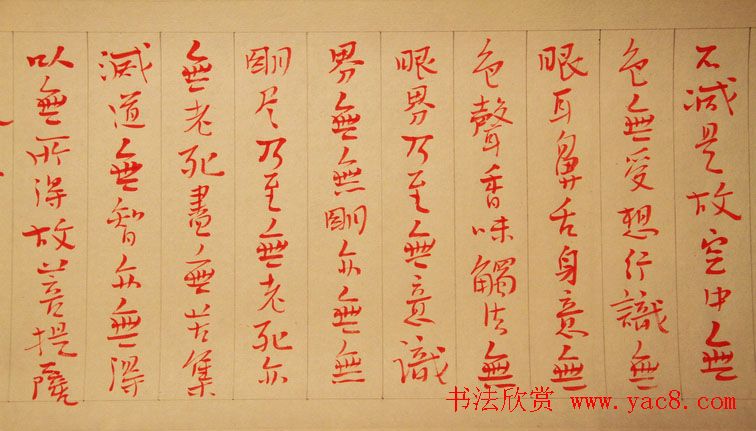 不減是故空中無
色無受想行識無
眼耳鼻舌身意無
色聲香味觸法無
眼界乃至無意識
界無無明亦無無
明尽乃至無老死亦
無老死盡無苦集
滅道無智亦無得
以無所得故菩提薩
书法欣赏 www.yac8.com